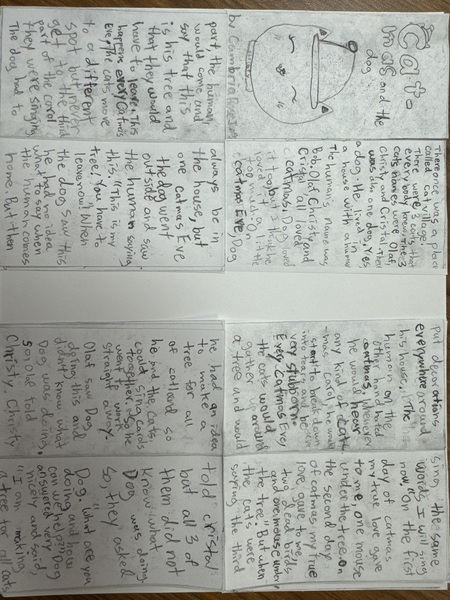 Cat-o
and the
dog
by Cambria
There once was a place
called cat village.
There were 3 cats that
everybody knew. The 3
cats names were Olaf,
Christy and Cristal. Then
was the one dog. Yes
a dog. He lived in
a house with a human
The humans name was
Bob. Olaf, Christy, and
Cristal all loved
catmas. Dog loved
it too but I think he
loved it a little
too much. On
catmas Eve, Dog
put decorations
everywhere around
his house. If the
human on the
other hand hated
catmas. Whenever
he would hear
any kind of cat
-mas carol he would
start to break down
into tears and he is
very stubborn.
Ever Catmas Eve,
the cats would
gather up around
a tree and would
sing the same
words I will sing
now, "On the first
day of catmas
my true love gave
to me, one mouse
under the tree. on
the second day
of catmas my true
love gave to me,
two dead birds
and one mouse under
the tree." But when
the cats were
saying the third
part, the human
would come and
say that this
is his tree and
that they would
have to leave. This
happens every Catmas
Eve, the cats move
to a different
spot but never
get to the third
part of the carol
they were singing.
The dog had to
always be in
the house, but
one catmas Eve
the dog went
outside and saw
the human saying
this, "This is my
tree! You have to
leave now!" When
the dog saw this
he had no idea
what to say when
the human comes
home. But then
he had an idea
to make a
tree for all
of catland so
he and the cats
could sing carols
together. So he
went to work
straight away.
Olaf saw Dog
doing this and
didn't know what
Dog was doing,
so Olaf told
Christy. Christy
told cristal
but all 3 of
them did not
know what
Dog was doing
so, they asked
Dog, "what are you
doing and how
can we help?" Dog
answered very
nicely and said
"I am making
a tree for all cats